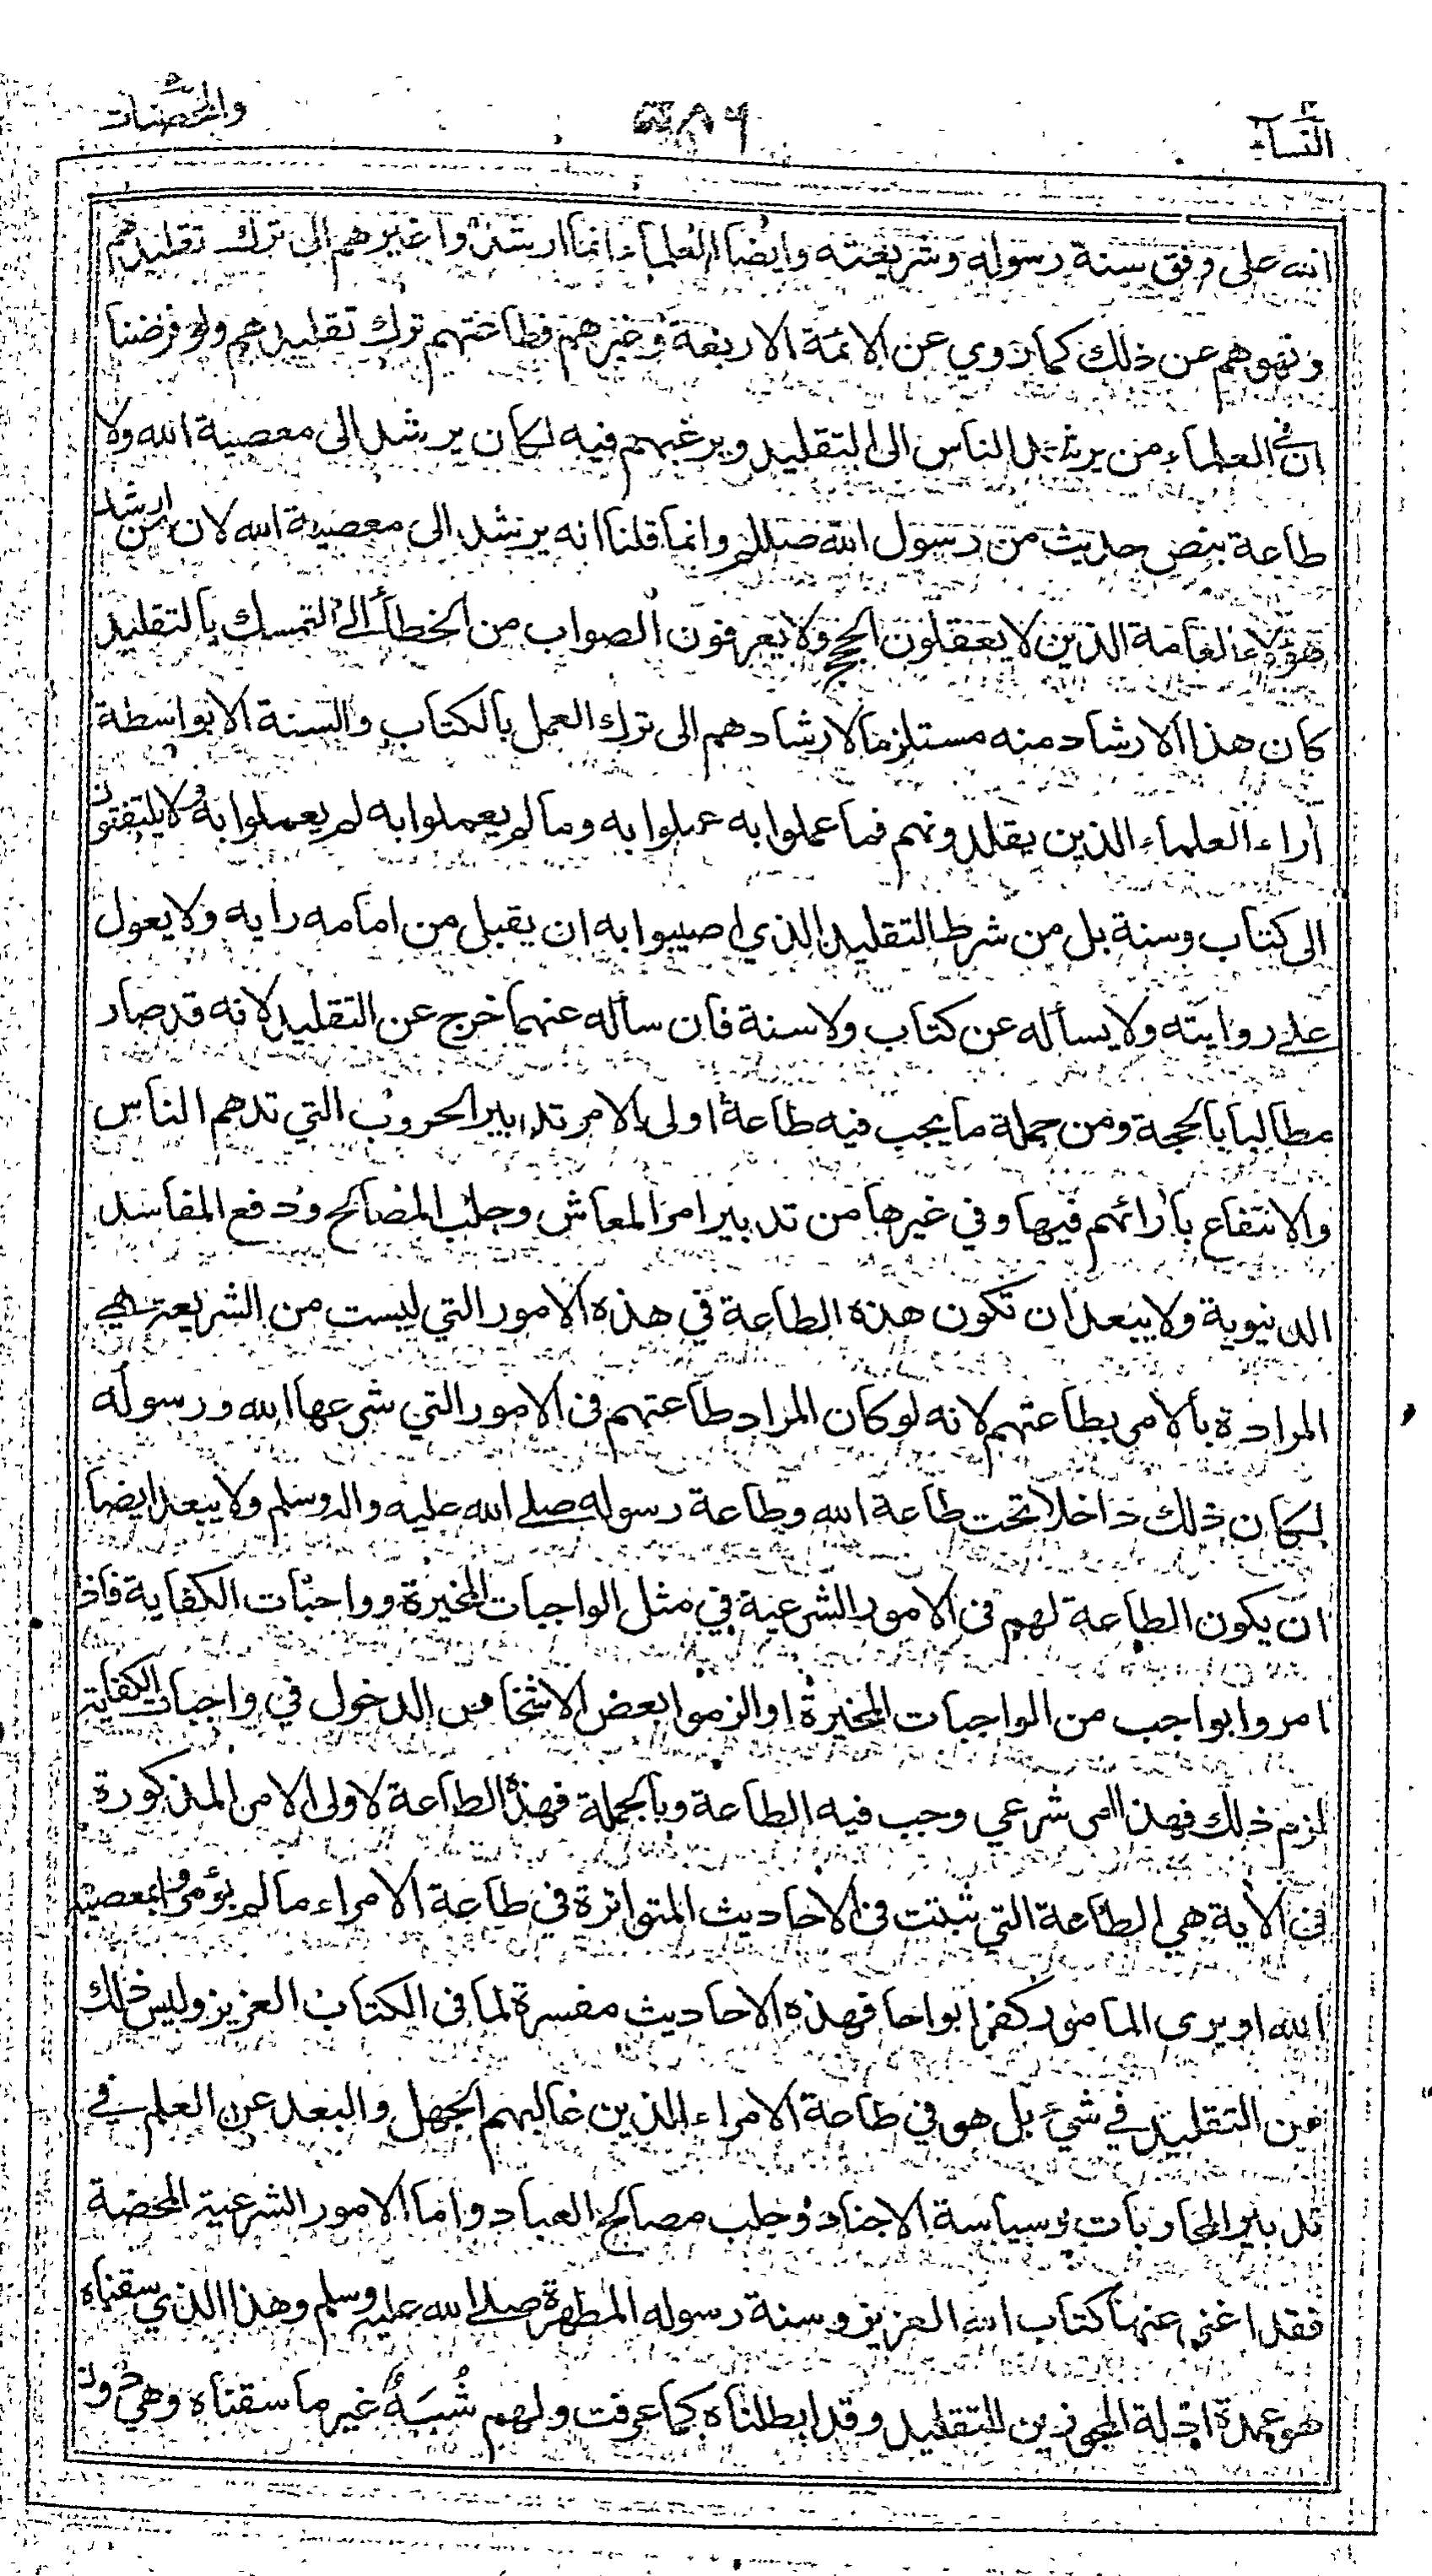 النساء
والمحصنات
الله على وفق سنة رسوله وشريعته وايضا العلماء انما ارشدوا غيرهم الى ترك تقليدهم
ونهوهم عن ذلك كما روي عن الائمة الاربعة وغيرهم فطاعتهم ترك تقليدهم ولو فرضنا
ان في العلماء من يرشد الناس الى التقليد ويرغبهم فيه لكان يرشد الى معصية الله ولا
طاعة بنص حديث من رسول الله صللم وانما قلنا انه يرشد الى معصية الله لان من ارشد
هؤلاء العامة الذين لا يعقلون الحجج ولا يعرفون الصواب من الخطأ الى التمسك بالتقليد
كان هذا الارشاد منه مستلزما لارشادهم الى ترك العمل بالكتاب والسنة الا بواسطة
اراء العلماء الذين يقلدونهم فما عملوا به عملوا به وما لم يعملوا به لم يعملوا به ولا يلتفتون
الى كتاب وسنة بل من شرط التقليد الذي اصيبوا به ان يقبل من امامه رايه ولا يعول
على روايته ولا يسأله عن كتاب ولا سنة فان سأله عنهما خرج عن التقليد لانه قد صار
مطالبا بالحجة ومن جملة ما يجب فيه طاعة اولى الامر تدبير الحروب التي تدهم الناس
والانتفاع بآرائهم فيها وفي غيرها من تدبير امر المعاش وجلب المصالح ودفع المفاسد
الدنيوية ولا يبعد ان تكون هذه الطاعة في هذه الامور التي ليست من الشريعة هي
المرادة بالامر بطاعتهم لانه لو كان المراد طاعتهم في الامور التي شرعها الله ورسوله
لكان ذلك داخلا تحت طاعة الله وطاعة رسوله صلى الله عليه واله وسلم ولا يبعد ايضا
ان يكون الطاعة لهم في الامور الشرعية في مثل الواجبات المخيرة وواجبات الكفاية فاذا
امروا بواجب من الواجبات المخيرة او الزموا بعض الاشخاص الدخول في واجبات الكفاية
لزم ذلك فهذا امر شرعي وجب فيه الطاعة وبالجملة فهذه الطاعة لاولى الامر المذكورة
في الآية هي الطاعة التي ثبتت في الاحاديث المتواترة في طاعة الامراء ما لم يؤمروا بمعصية
الله او يرى المامور كفرا بواحا فهذه الاحاديث مفسرة لما في الكتاب العزيز وليس ذلك
من التقليد في شيء بل هو في طاعة الامراء الذين غالبهم الجهل والبعد عن العلم في
تدبير المحاربات وسياسة الاجناد وجلب مصالح العباد واما الامور الشرعية المحضة
فقد اغنى عنها كتاب الله العزيز وسنة رسوله المطهرة صلى الله عليه وسلم وهذا الذي سقناه
هو عمدة ادلة المجوزين للتقليد وقد ابطلناه كما عرفت ولهم شُبَهٌ غير ما سقناه وهي دون